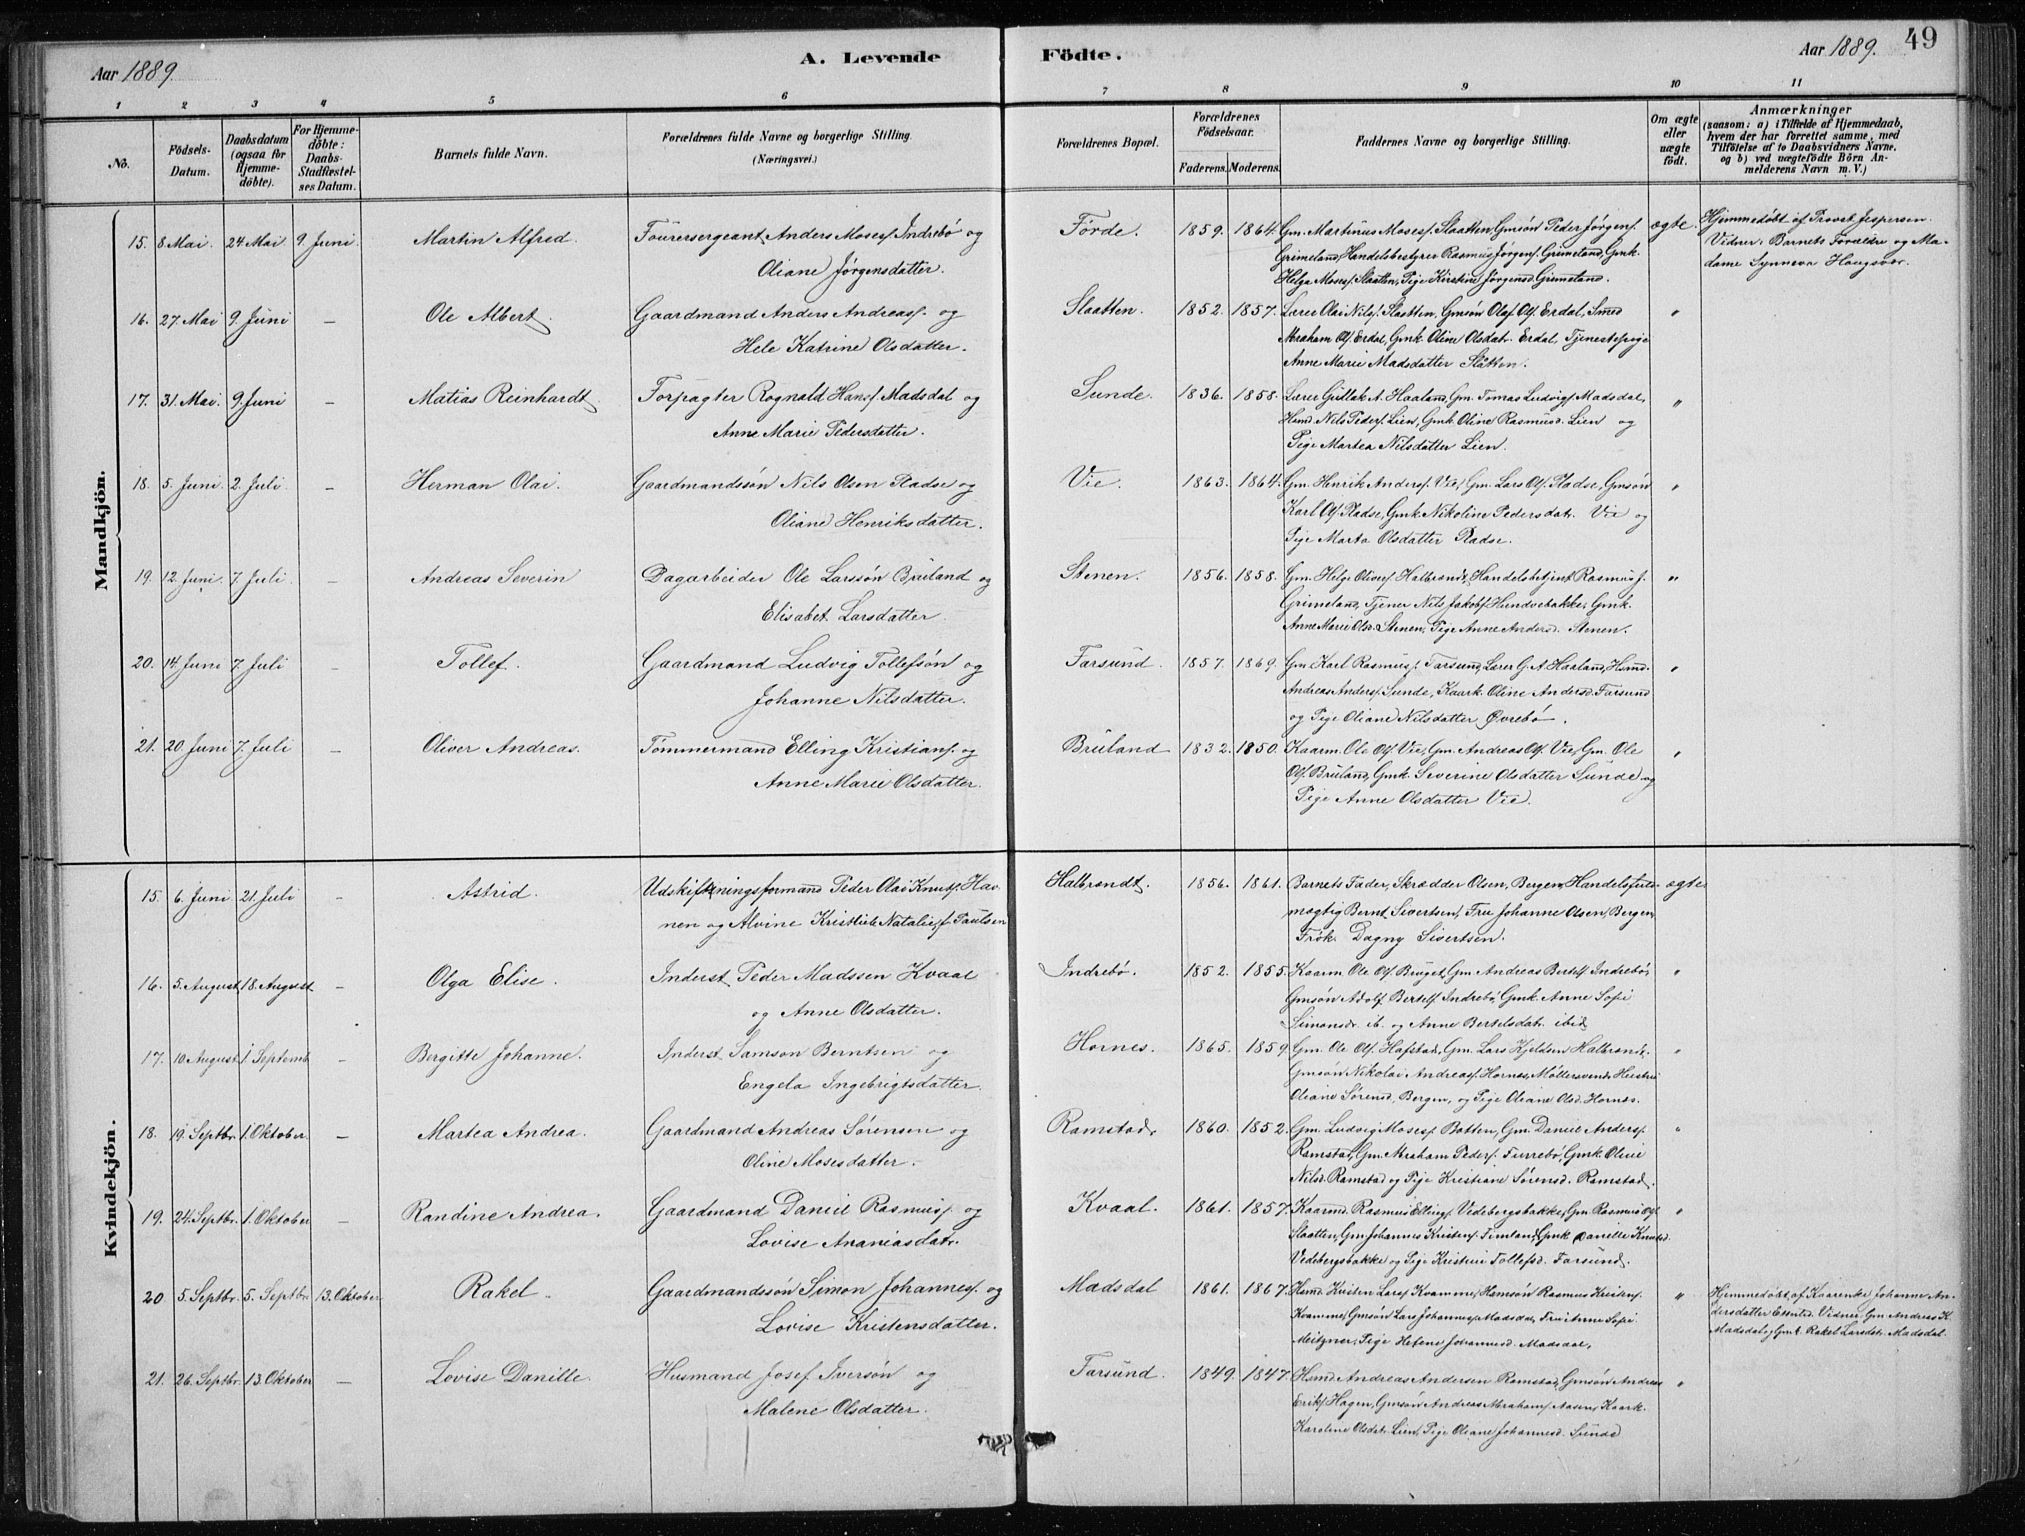 Aar 1889.
A. Levende
Födte.
Aar 1889.
49
1 2 3 4 5 6 7 8 9 10 11
No.
Födsels-
Datum.
Daabsdatum
(ogsaa for
Hjemme-
döbte).
For Hjemme-
döbte:
Daabs-
Stadfæstel-
ses Datum.
Barnets fulde Navn.
Forældrenes fulde Navne og borgerlige Stilling.
(Næringsvei.)
Forældrenes Bopæl.
Forældrenes
Födselsaar.
Faderens. Moderens.
Faddernes Navne og borgerlige Stilling.
Om ægte
eller
uægte
födt.
Anmærkninger
(saasom: a) i Tilfælde af Hjemmedaab,
hvem der har forrettet samme, med
Tilföielse af to Daabsvidners Navne,
og b) ved uægtefödte Börn An-
melderens Navn m. V.)
Mandkjön.
15. 8 Mai. 24 Mai. 9. Juni Martin Alfred. Fourersergeant Anders Mosesf. Indrebø og
Oliane Jørgensdatter.
Förde. 1859. 1864. Gm. Martinus Mosesf. Slaatten, Gmsøn Peder Jørgenf.
Grimeland, Handelsbestyrer Rasmus Jørgenf. Grimeland, Gmk.
Helga Mosesf. Slaatten, Pige Kirstine Jørgensd Grimeland.
ægte. Hjemmedøbt af Provst Jespersen.
Vidner: Barnets Forældre og Ma-
dame Synneva Haugsvær.
16. 27. Mai 9. Juni — Ole Albert. Gaardmand Anders Andreasf. og
Hele Katrine Olsdatter.
Slaatten. 1852. 1857. Lærer Olai Nilsf. Slatten, Gmsøn Olaf Olf. Erdal, Smed
Abraham Olf. Erdal, Gmk. Oline Olsdat. Erdal, Tjenestepige
Anne Marie Madsdatter Slåtten.
"
17. 31. Mai. 9. Juni — Matias Reinhardt. Forpagter Rognald Hansf. Madsdal og
Anne Marie Pedersdatter.
Sunde. 1836. 1858. Lærer Gudlak A. Haaland, Gm. Tomas Ludvigf. Madsdal,
Hsmd. Nils Pedersf. Lien, Gmk. Oline Rasmusd. Lien og
Pige Martea Nilsdatter Lien.
"
18. 5. Juni. 2. Juli. — Herman Olai. Gaardmandssøn Nils Olsen Pladse og
Oliane Henriksdatter.
Vie. 1863. 1864. Gm. Henrik Andersf. Vie, Gm. Lars Olf. Pladse, Gmsøn
Karl Olf. Pladse, Gmk. Nikoline Pedersdat. Vie og
Pige Marta Olsdatter Pladse.
"
19. 12. Juni. 7. Juli. — Andreas Severin Dagarbeider Ole Larssøn Bruland og
Elisabet Larsdatter.
Stenen. 1856. 1858. Gm. Helge Olivesf. Halbrendt, Handelsbetjent Rasmusf.
Grimeland, Tjener Nils Jakobf. Hundvebakke, Gmk.
Anne Marie Olsd. Stenen, Pige Anne Andersd. Stenen.
"
20. 14. Juni 7. Juli — Tollef. Gaardmand Ludvig Tollefsön og
Johanne Nilsdatter.
Farsund. 1857. 1869. Gm. Karl Rasmusf. Farsund, Lærer G. A. Haaland, Hsmd.
Andreas Andersf. Sunde, Kaark. Oline Andersd. Farsund
og Pige Oliane Nilsdatter Øvrebø.
"
21. 20. Juni 7. Juli — Oliver Andreas. Tømmermand Elling Kristianf. og
Anne Marie Olsdatter.
Bruland 1832. 1850. Kaarm. Ole Olf. Vie, Gm. Andreas Olf. Vie, Gm. Ole
Olf. Bruland, Gmk. Severine Olsdatter Sunde og
Pige Anne Olsdatter Vie.
"
Kvindekjön.
15. 6. Juni 21. Juli — Astrid. Udskiftningsformand Peder Olai Knutsf. Hav-
nen og Alvine Natalie f. Paulsen
Halbrendt. 1856. 1861. Barnets Fader, Skrædder Olsen, Bergen, Handelsfuld-
mægtig Bernt Sivertsen, Fru Johanne Olsen, Bergen,
Frøk. Dagny Sivertsen.
ægte
16. 5. August. 18. August. — Olga Elise. Inderst Peder Madssen Kvaal
og Anne Olsdatter.
Indrebø. 1852. 1855. Kaarm. Ole Olf. Bruget, Gm. Andreas Bertelf. Indrebø,
Gmsøn Adolf Bertelf. Indrebø, Gmk. Anne Sofie
Simonsdr. ib. og Anne Bertelsdat. ibid.
"
17. 10. August. 1. Septemb. — Bergitte Johanne. Inderst Samson Berntsen og
Engela Ingebrigtsdatter.
Hornes. 1865. 1859. Gm. Ole Olf. Hafstad, Gm. Lars Kjeldsen Halbrendt,
Gmsøn Nikolai Andreasf. Hornes, Møllersvends Hustru
Oliane Sørensd. Bergen, og Pige Oliane Olsd. Hornes.
"
18. 19. Septbr. 1. Oktober. — Martea Andrea. Gaardmand Andreas Sørensen og
Oline Mosesdatter.
Ramstad. 1860. 1852. Gm. Ludvig Mosesf. Botten, Gm. Daniel Andersf.
Ramstad, Gm. Abraham Pedersf. Furrebø, Gmk. Oline
Nilsd. Ramstad og Pige Kristiane Sørensd. Ramstad.
"
19. 24. Septbr. 1. Oktober — Randine Andrea. Gaardmand Daniel Rasmusf. og
Lovise Ananiasdatr.
Kvaal. 1861. 1857. Kaarmd. Rasmus Ellingf. Vedebergsbakke, Gm. Rasmus Olf.
Slaatten, Gm. Johannes Kristenf. Fimland, Gmk. Danielle Knutsd.
Vedebergsbakke og Pige Kristine Tollefsd. Farsund.
"
20 5. Septbr. 5. Septbr. 13. Oktober. Rakel. Gaardmandssön Simon Johannesf. og
Lovise Kristensdatter.
Madsdal 1861. 1867. Hsmd. Kristen Larsf. Kvamme, Hsmsön Rasmus Kristenf.
Kvamme, Gmsøn Lars Johannesf. Madsdal, Fru Anne Sofie
Meitzner, Pige Helene Johannesd. Madsdal.
" Hjemmedøbt af Kaarenke Johanne An-
dersdatter Vidner Gm. Andreas K.
Madsdal og Gmk. Rakel Larsdt. Madsdal.
21. 26. Septbr. 13. Oktober — Lovise Danille. Husmand Josef Iversøn og
Malene Olsdatter.
Farsund. 1849. 1847. Hsmd. Andreas Andersen Ramstad, Gmsøn Andreas
Erikf. Hagen, Gmsøn Andreas Abrahamf. Aasen, Kaark.
Karoline Olsdat. Lien, Pige Oliane Johannesd. Sunde
"